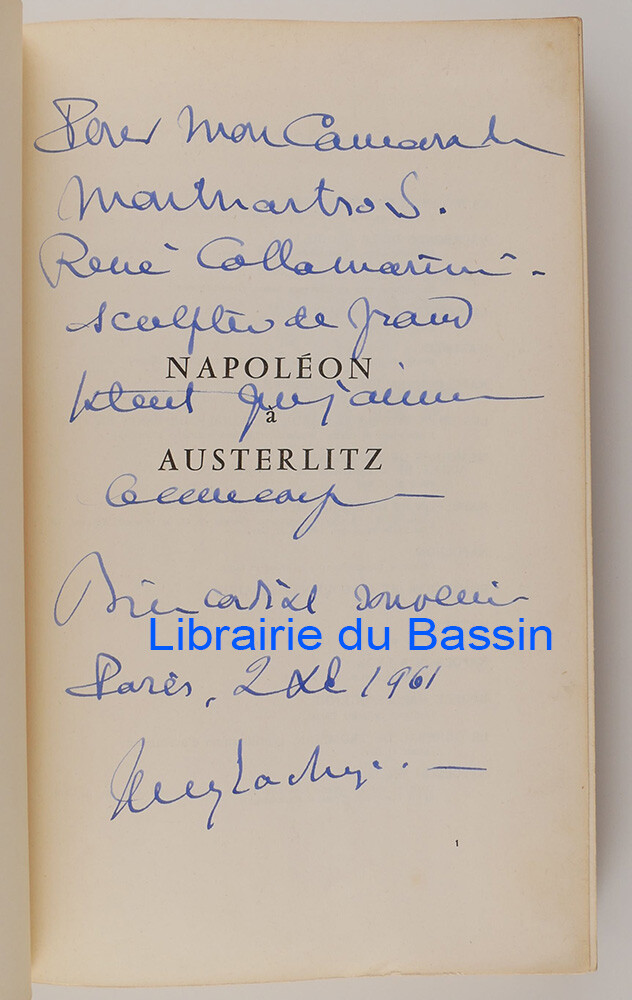 Pour mon Camarade
Montmartrois.
René Collamarini -
sculpteur de grand
NAPOLÉON
talent que j'aime
à
AUSTERLITZ
beaucoup
Bien cordial souvenir
Librairie du Bassin
Paris, 2 XI 1961
Henry Lachouque
1